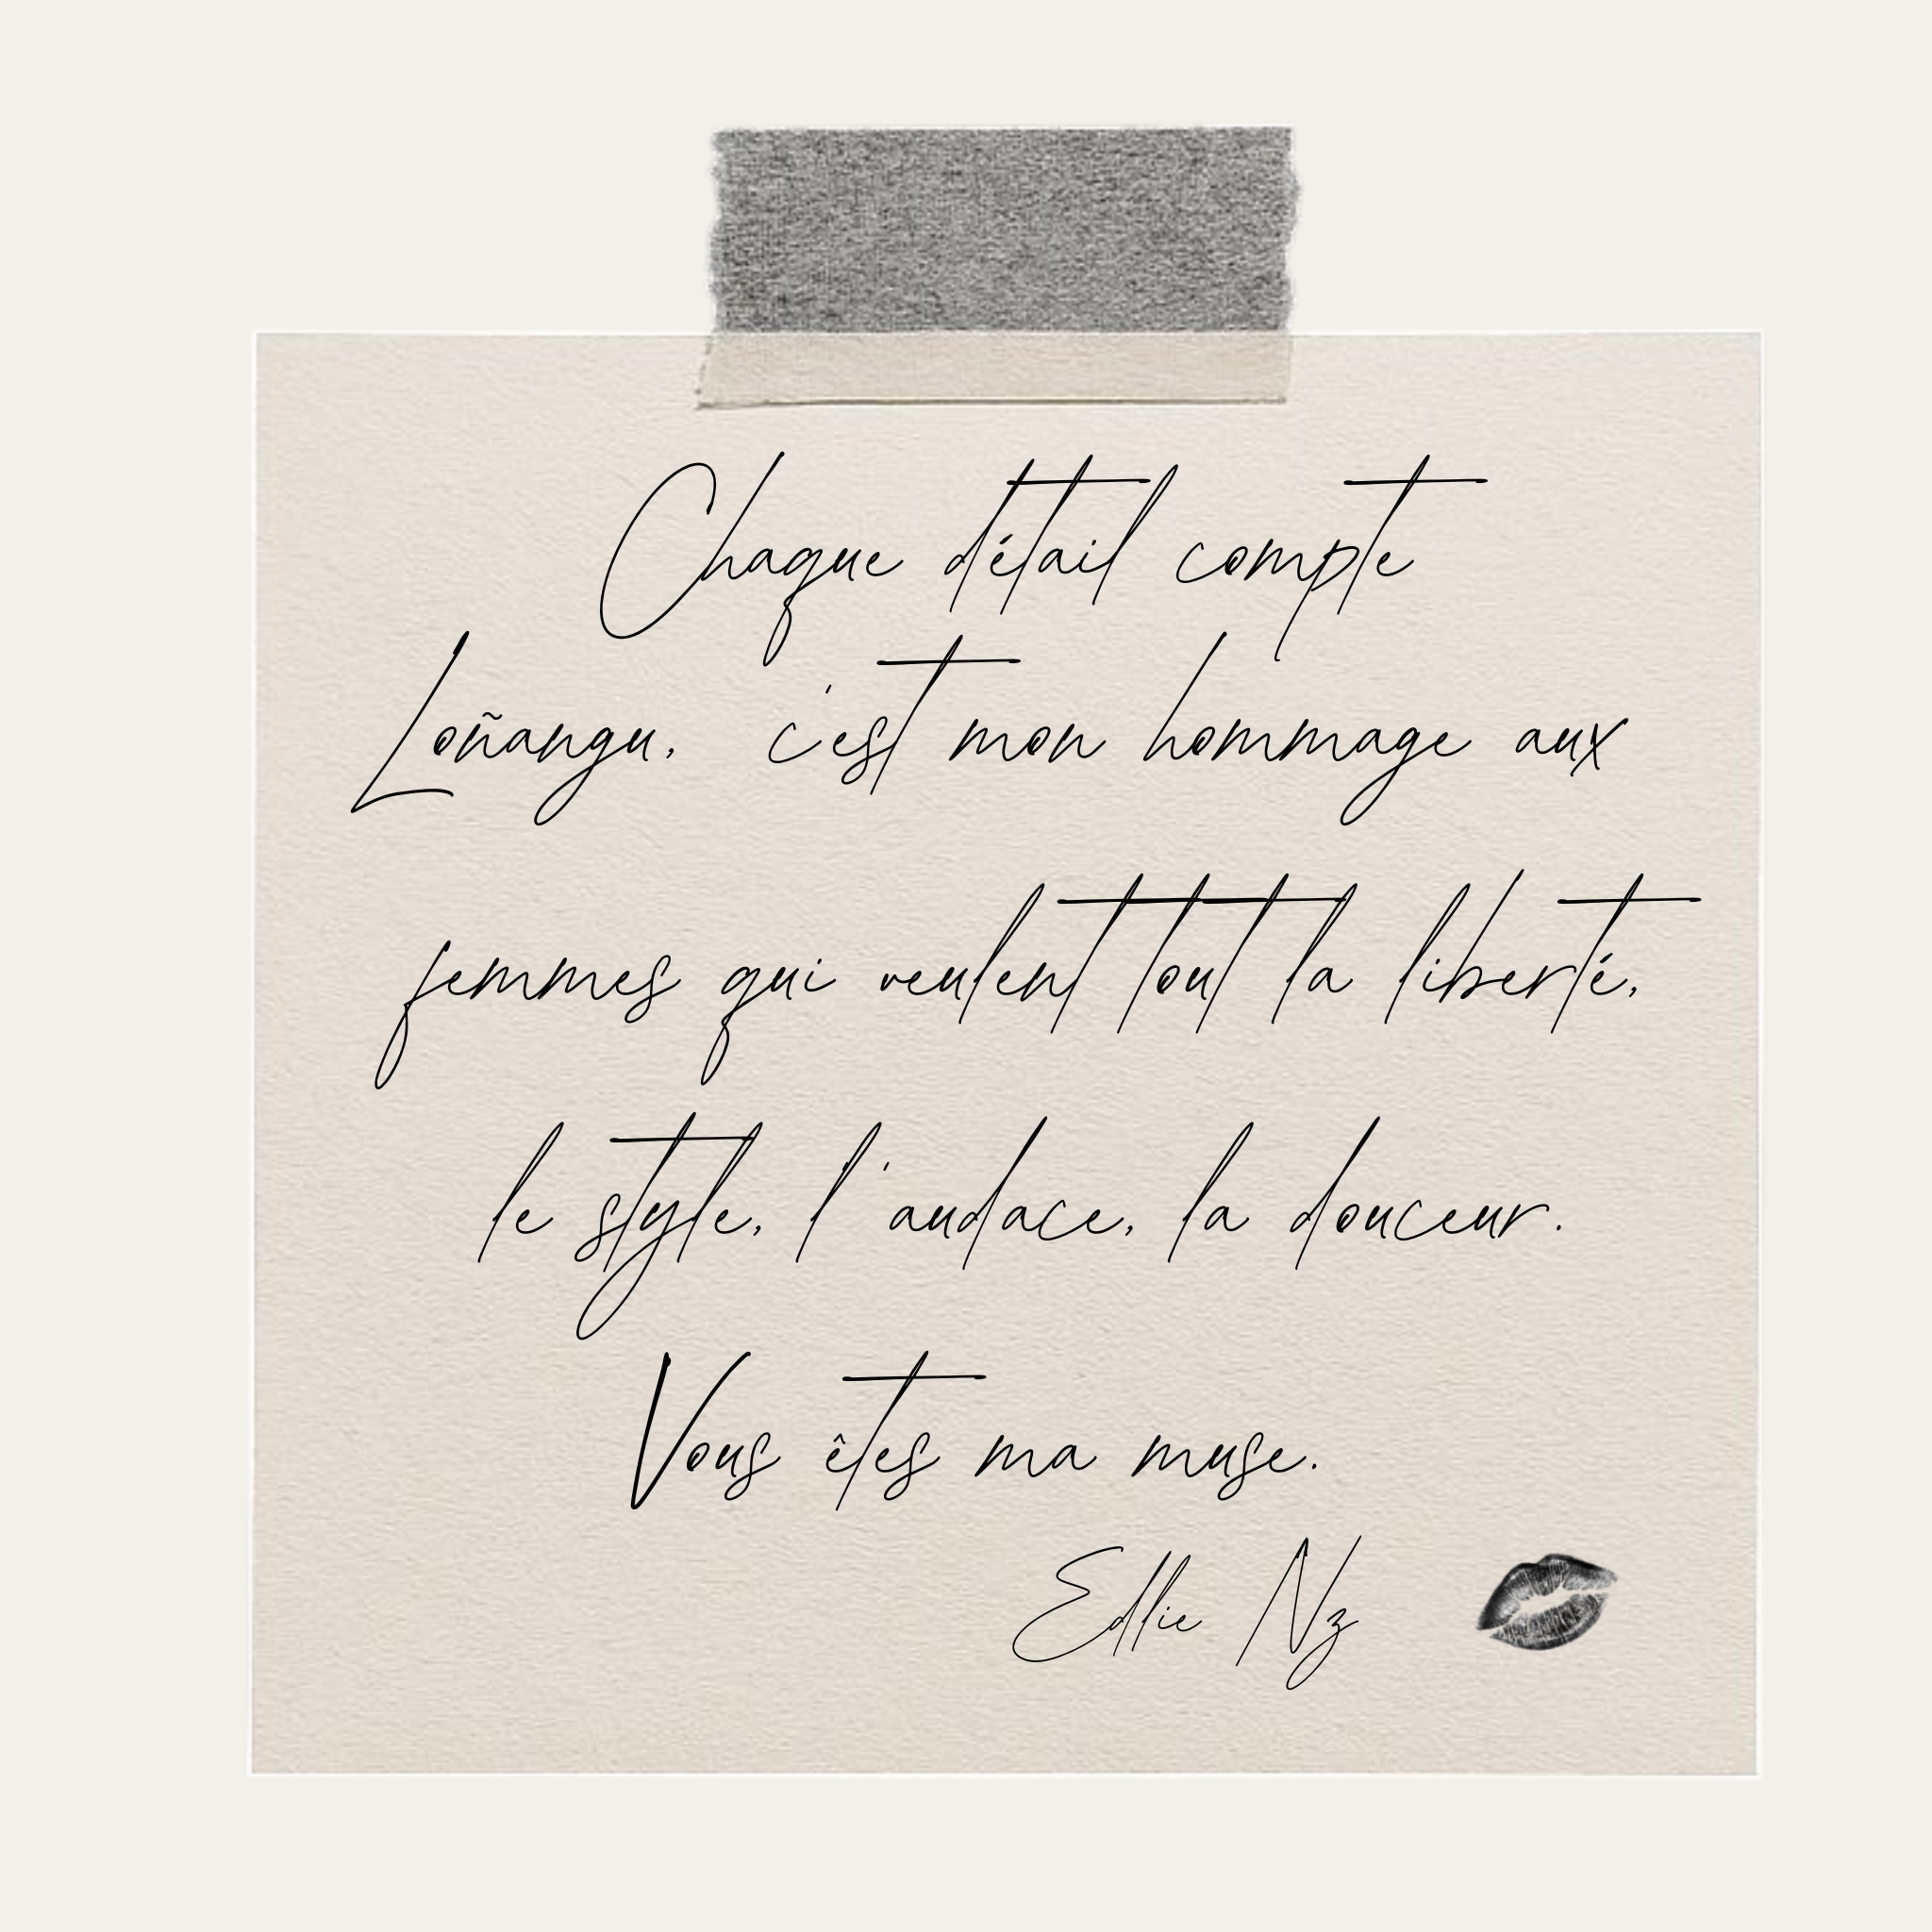 Chaque détail compte
Loñangu, c'est mon hommage aux
femmes qui veulent tout la liberté,
le style, l'audace, la douceur.
Vous êtes ma muse.
Edlie Nz